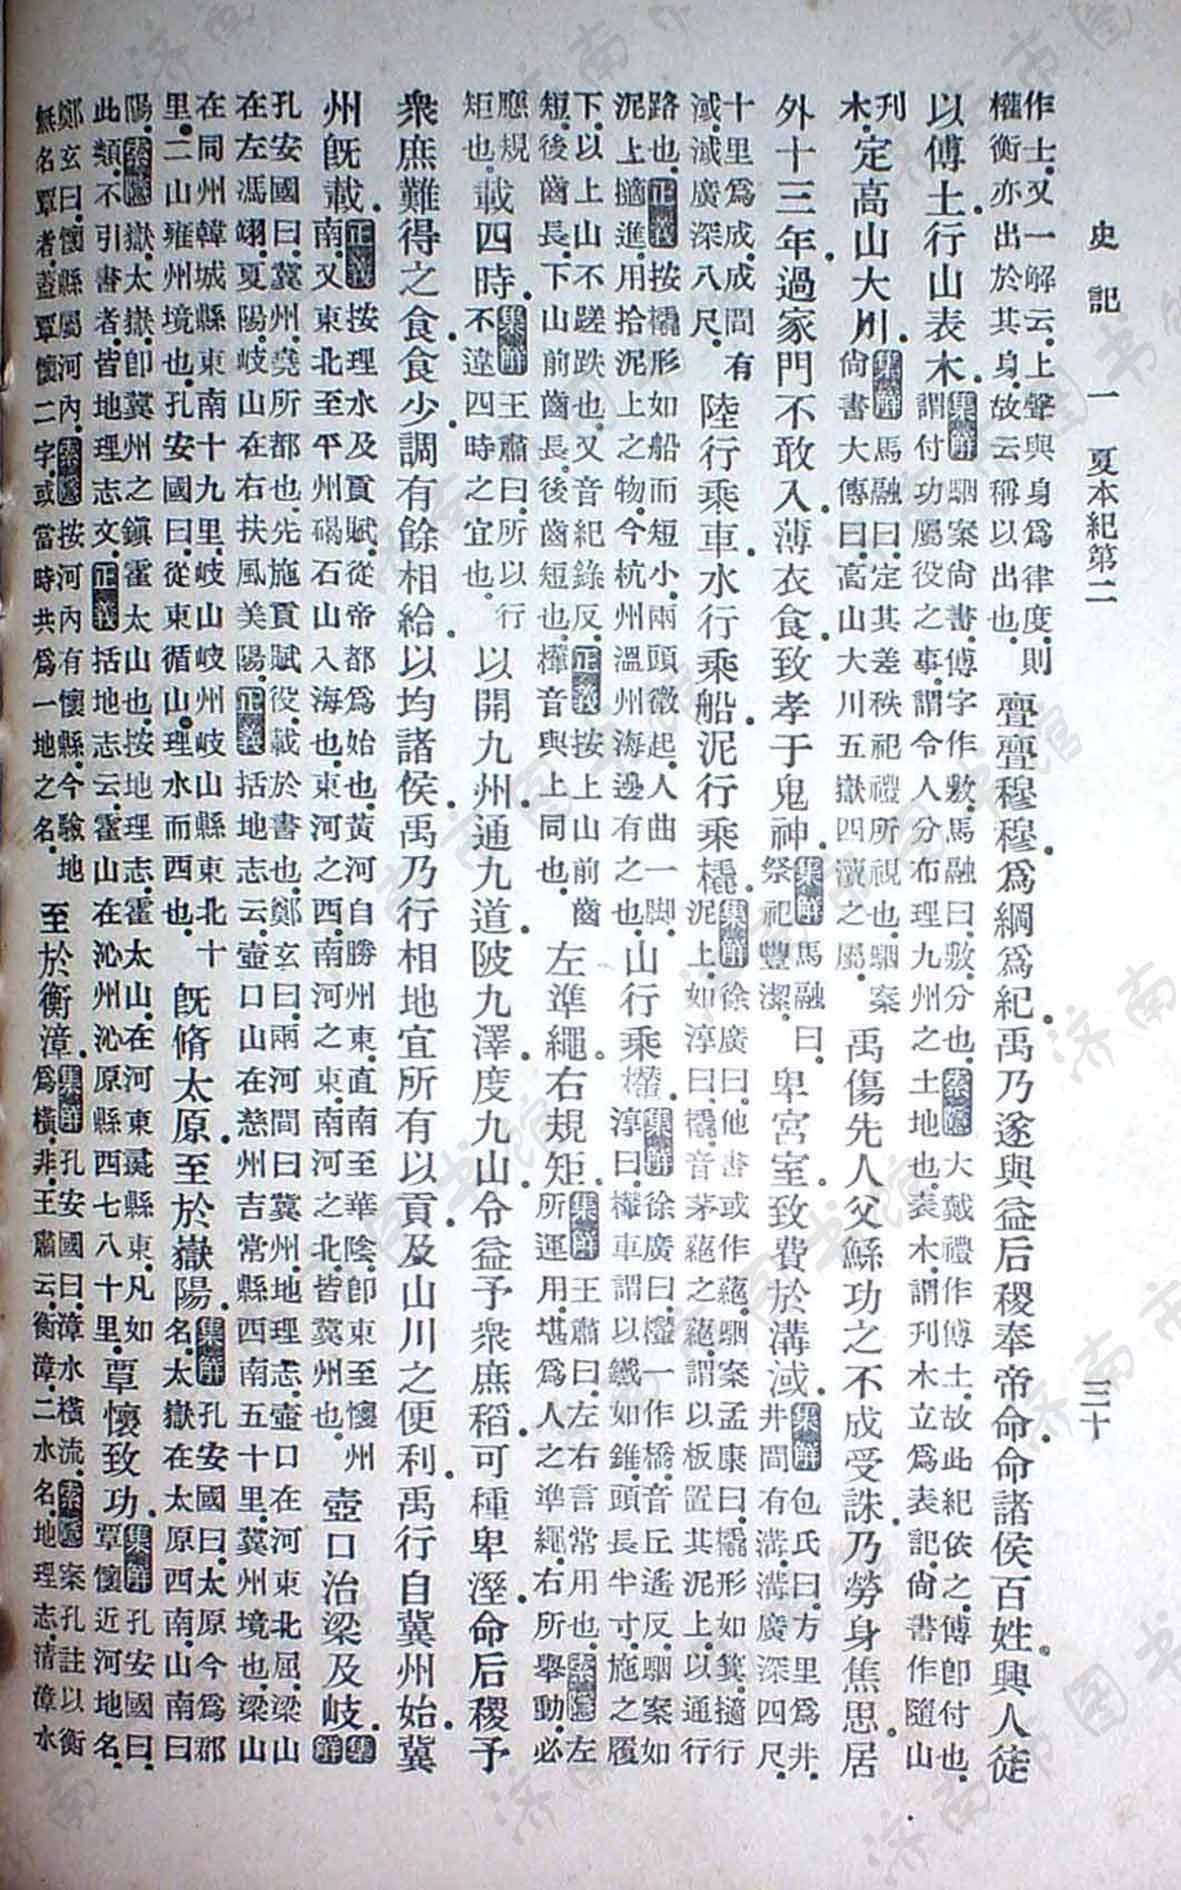 史記 一 夏本紀第二 三十
作士.又一解云.上聲與身爲律度.則權衡亦出於其身.故云稱以出也.亹亹穆穆.爲綱爲紀.禹乃遂與益后稷奉帝命.命諸侯百姓.興人徒
以傅土.行山表木.集解駰案尙書傅字作敷.馬融曰.敷.分也.索隱大戴禮作傅土.故此紀依之.傅卽付也.謂付功屬役之事.謂令人分布理九州之土地也.表木.謂刊木立爲表記.尙書作隨山
刊木.定高山大川.集解馬融曰.定其差秩祀禮所視也.駰案尙書大傳曰.高山大川五嶽四瀆之屬.禹傷先人父鯀功之不成受誅.乃勞身焦思.居
外十三年.過家門不敢入.薄衣食.致孝于鬼神.集解馬融曰.祭祀豐潔.卑宮室.致費於溝淢.集解包氏曰.方里爲井.井間有溝.溝廣深四尺.
十里爲成.成間有淢.淢廣深八尺.陸行乘車.水行乘船.泥行乘橇.集解徐廣曰.他書或作蕝.駰案孟康曰.橇形如箕.擿行泥上.如淳曰.橇.音茅蕝之蕝.謂以板置其泥上.以通行
路也.正義按橇形如船而短小.兩頭微起.人曲一脚.泥上擿進.用拾泥上之物.今杭州溫州海邊有之也.山行乘檋.集解徐廣曰.檋一作橋.音丘遙反.駰案如淳曰.檋車謂以鐵如錐頭.長半寸.施之履
下.以上山不蹉跌也.又音紀錄反.正義按上山前齒短.後齒長.下山前齒長.後齒短也.檋音與上同也.左準繩.右規矩.集解王肅曰.左右言常用也.索隱左所運用.堪爲人之準繩.右所舉動.必
應規矩也.載四時.集解王肅曰.所以行不違四時之宜也.以開九州.通九道.陂九澤.度九山.令益予衆庶稻.可種卑溼.命后稷予
衆庶難得之食.食少.調有餘相給.以均諸侯.禹乃行相地宜所有以貢.及山川之便利.禹行自冀州始.冀
州旣載.正義按理水及貢賦.從帝都爲始也.黃河自勝州東.直南至華陰.卽東至懷州南.又東北至平州碣石山入海也.東河之西.南河之東.南河之北.皆冀州也.壺口治梁及岐.集解
孔安國曰.冀州.堯所都也.先施貢賦役.載於書也.鄭玄曰.兩河間曰冀州.地理志.壺口在河東北屈.梁山在左馮翊夏陽.岐山在右扶風美陽.正義括地志云.壺口山在慈州吉常縣西南五十里.冀州境也.梁山
在同州韓城縣東南十九里.岐山岐州岐山縣東北十里.二山雍州境也.孔安國曰.從東循山.理水而西也.旣脩太原.至於嶽陽.集解孔安國曰.太原今爲郡名.太嶽在太原西南.山南曰
陽.索隱嶽.太嶽.卽冀州之鎮霍太山也.按地理志.霍太山.在河東彘縣東.凡如此類.不引書者.皆地理志文.正義括地志云.霍山在沁州沁原縣西七八十里.覃懷致功.集解孔安國曰.覃懷近河地名.
鄭玄曰.懷縣屬河內.索隱按河內有懷縣.今驗地無名覃者.蓋覃懷二字.或當時共爲一地之名.至於衡漳.集解孔安國曰.漳水橫流.索隱案孔註以衡爲橫.非.王肅云.衡.漳.二水名.地理志.清漳水